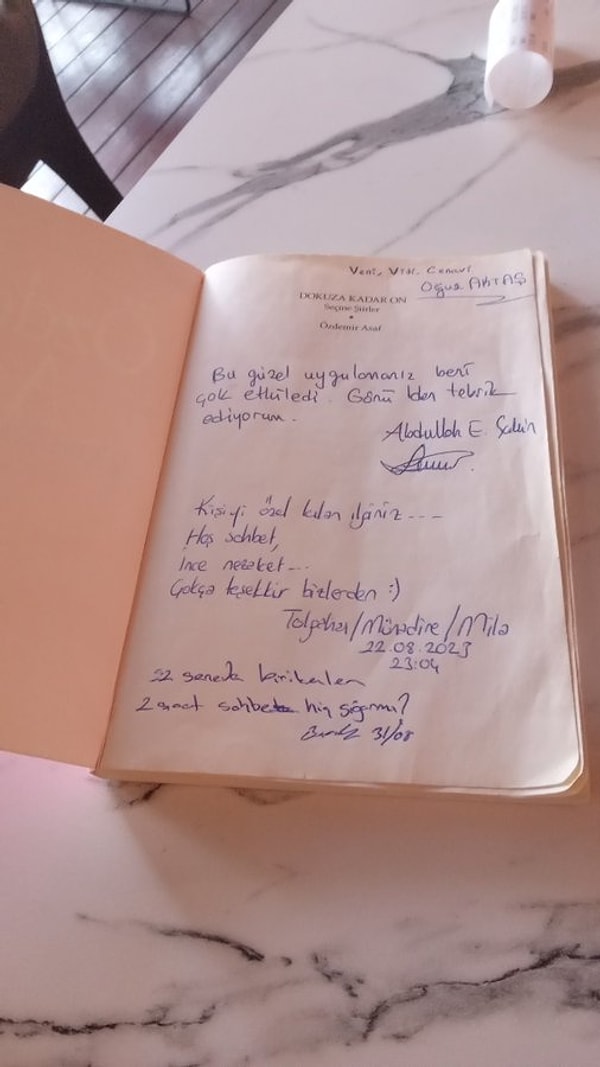 Veni, Vidi, Cenavi
Oğuz AKTAŞ
DOKUZA KADAR ON
Seçme Şiirler
Özdemir Asaf
Bu güzel uygulamanız beni
çok etkiledi. Gönülden tebrik
ediyorum.
Abdullah E. Şahin
Kişiyi özel kılan ilginiz ---
Hoş sohbet,
İnce nezaket ---
Çokça teşekkür bizlerden :)
/ Müradiye / Mila
22.08.2023
23:04
senede birikenler
2 saat sohbete hiç sığarmı?
31/08